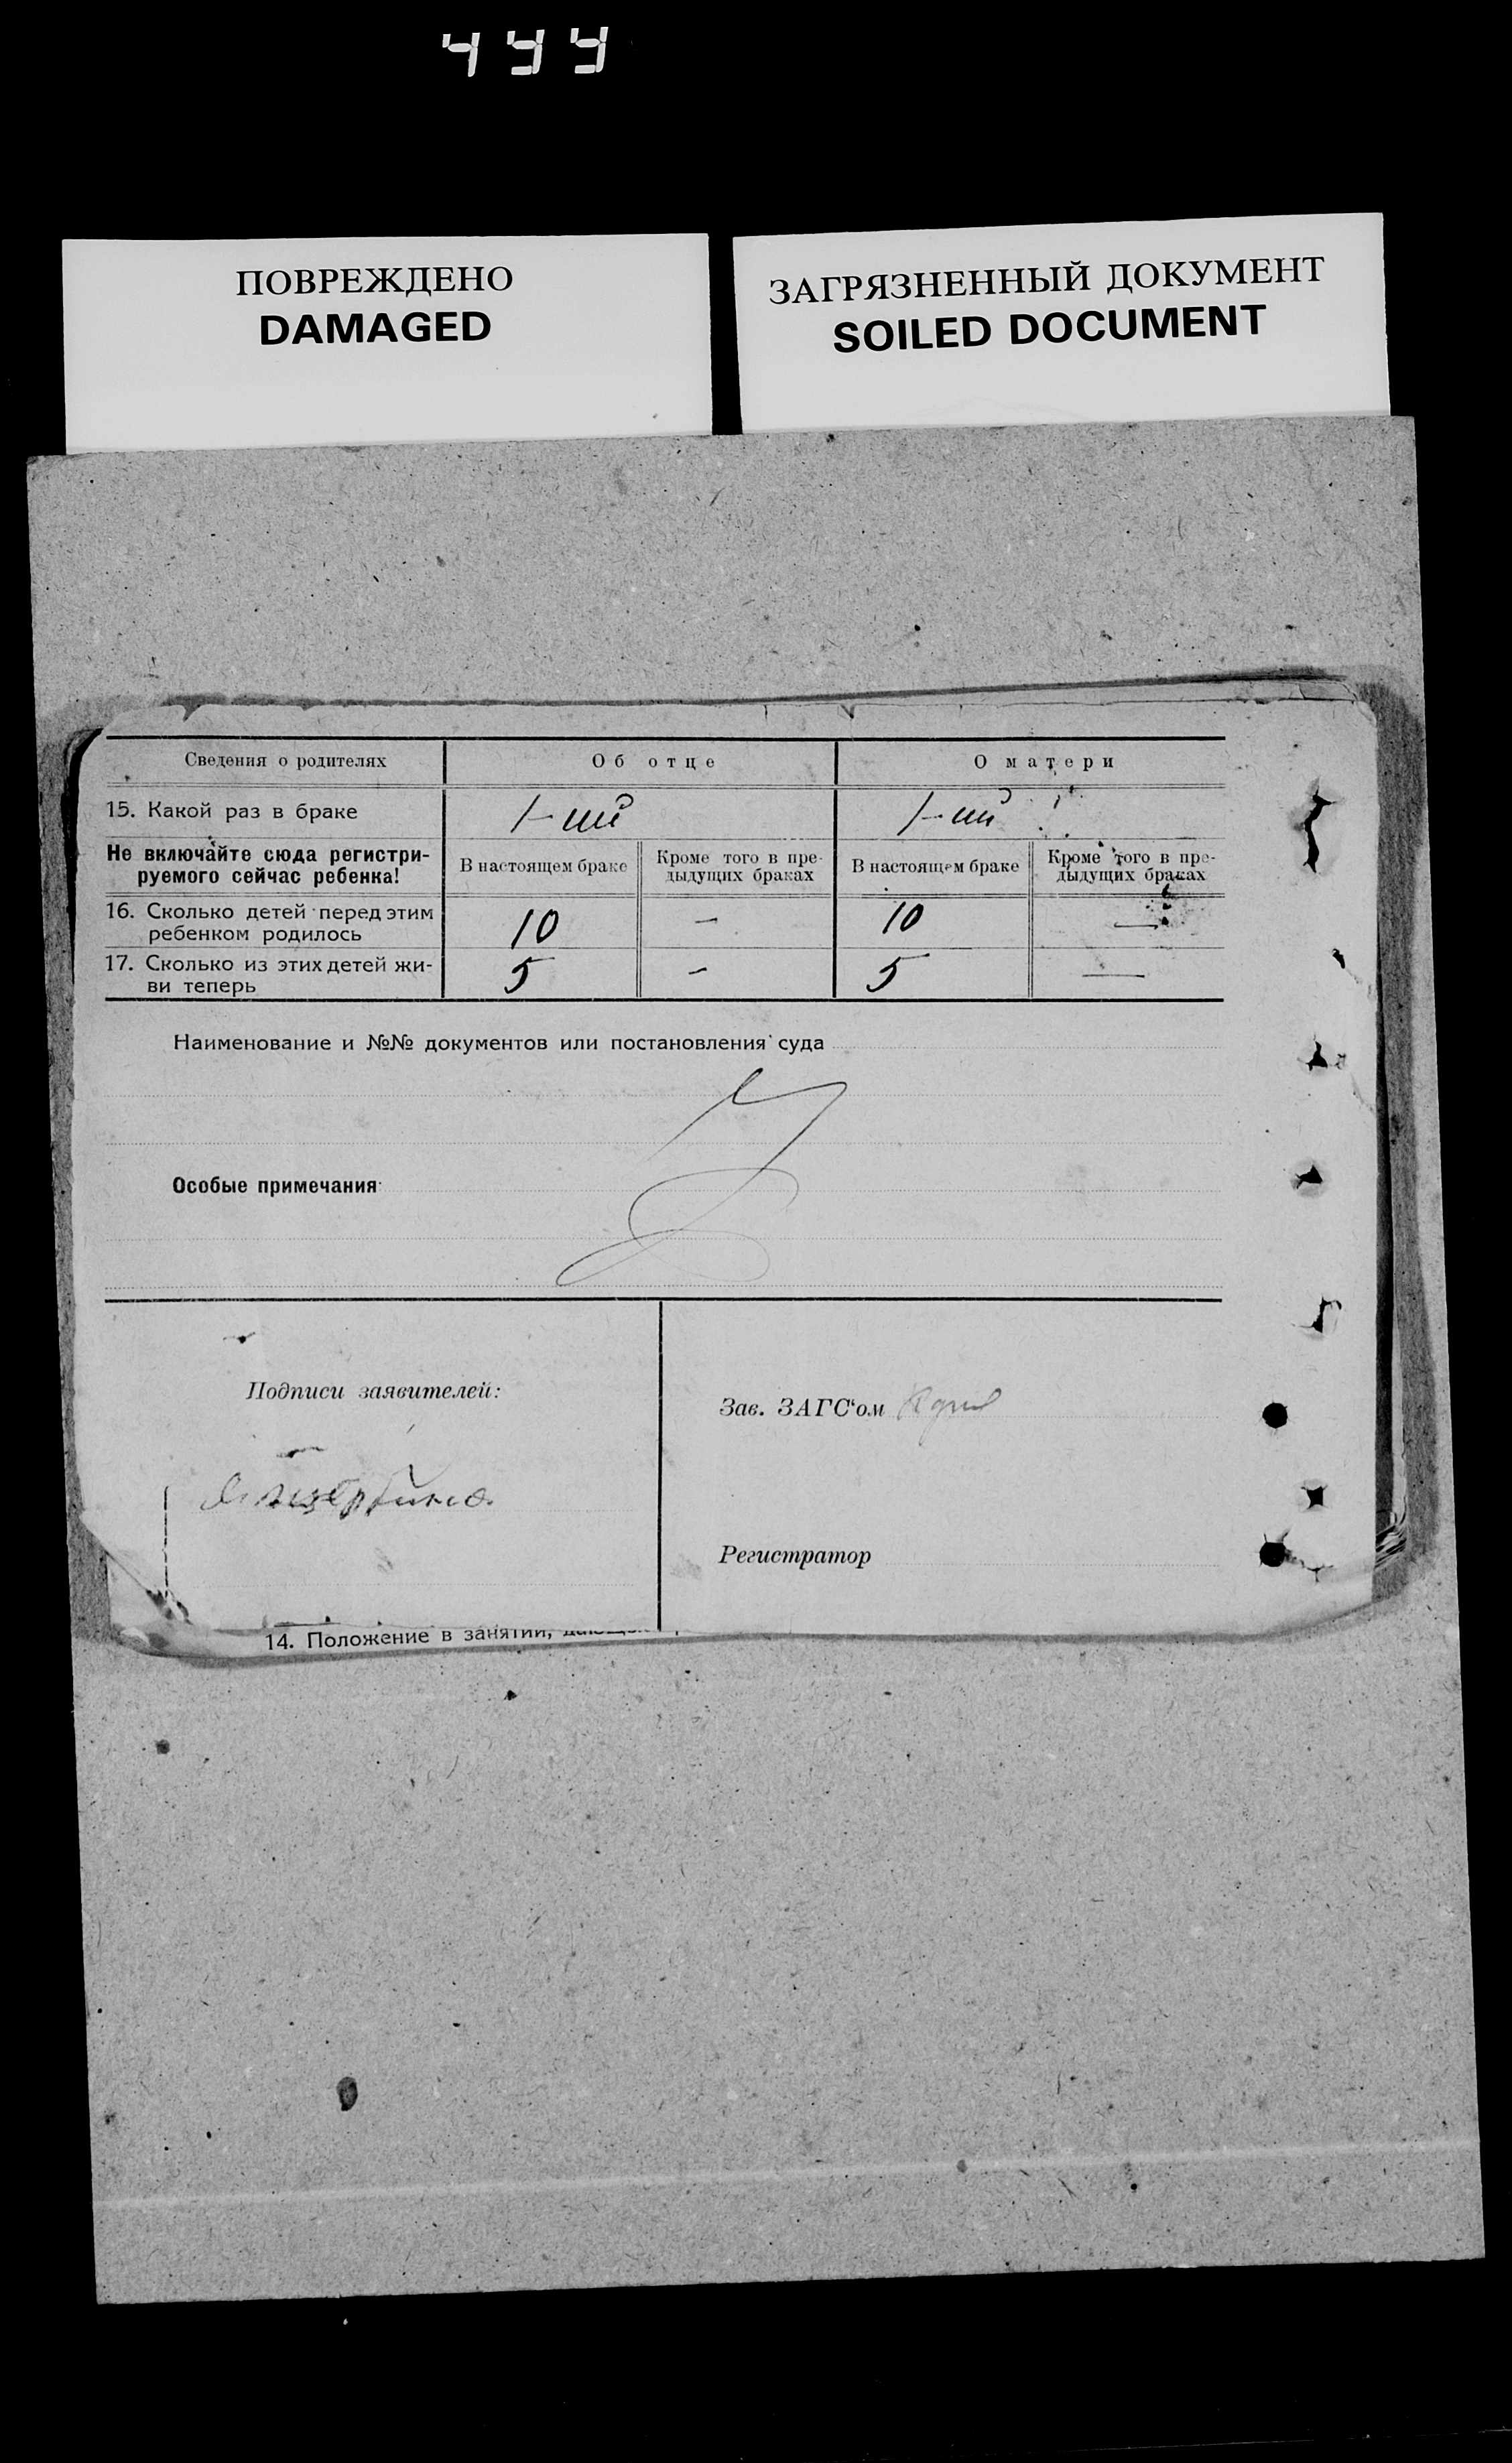 ПОВРЕЖДЕНО
DAMAGED
ЗАГРЯЗНЕННЫЙ ДОКУМЕНТ
SOILED DOCUMENT
Сведения о родителях Об отце О матери
15. Какой раз в браке 1-ый 1-ый
Не включайте сюда регистри-
руемого сейчас ребенка!
В настоящем браке
Кроме того в пре-
дыдущих браках
В настоящем браке
Кроме того в пре-
дыдущих браках
16. Сколько детей перед этим
ребенком родилось
10 – 10 —
17. Сколько из этих детей жи-
ви теперь
5 – 5 —
Наименование и №№ документов или постановления суда
Особые примечания
Подписи заявителей:
Зав. ЗАГС‘ом
Регистратор
14. Положение в занятии,